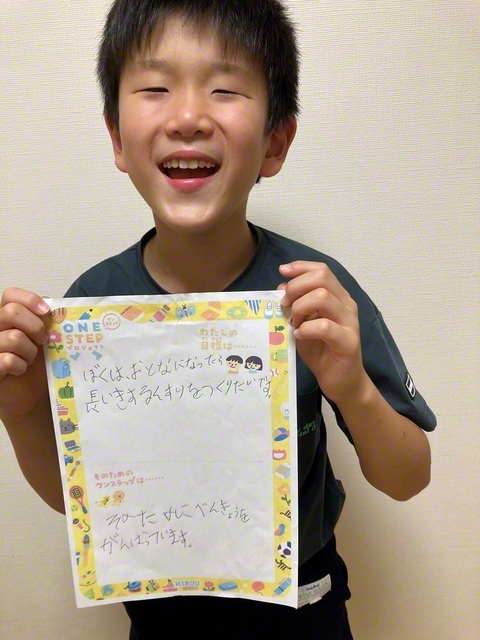 ONE
STEP
プロジェクト
わたしの
目標は……
ぼくは、おとなになったら
長いきするくすりをつくりたいです。
そのための
ワンステップは……
そのためにべんきょうを
がんばっています。